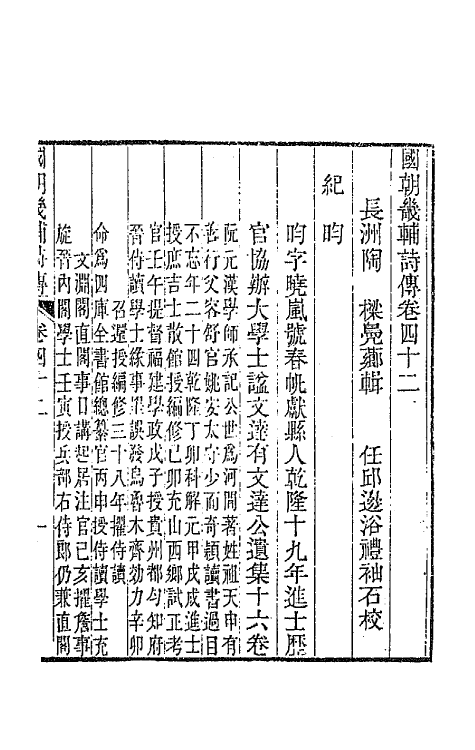 國朝畿輔詩傳卷四十二
長洲陶　樑鳧薌輯　任邱邊浴禮袖石校
紀　昀
昀字曉嵐號春帆獻縣人乾隆十九年進士歷
官協辦大學士諡文達有文達公遺集十六卷
阮元漢學師承記公世爲河間著姓祖天申有
善行父容舒官姚安太守少而奇穎讀書過目
不忘年二十四乾隆丁卯科解元甲戌成進士
授庶吉士散館授編修己卯充山西鄉試正考
官壬午提督福建學政戊子授貴州都勻知府
晉侍讀學士緣事罣誤發烏魯木齊効力辛卯
召還授編修三十八年擢侍讀
命爲四庫全書館總纂官丙申授侍讀學士充
文淵閣直閣事日講起居注官己亥擢詹事
旋晉內閣學士壬寅授兵部右侍郎仍兼直閣
國朝畿輔詩傳　卷四十二　一